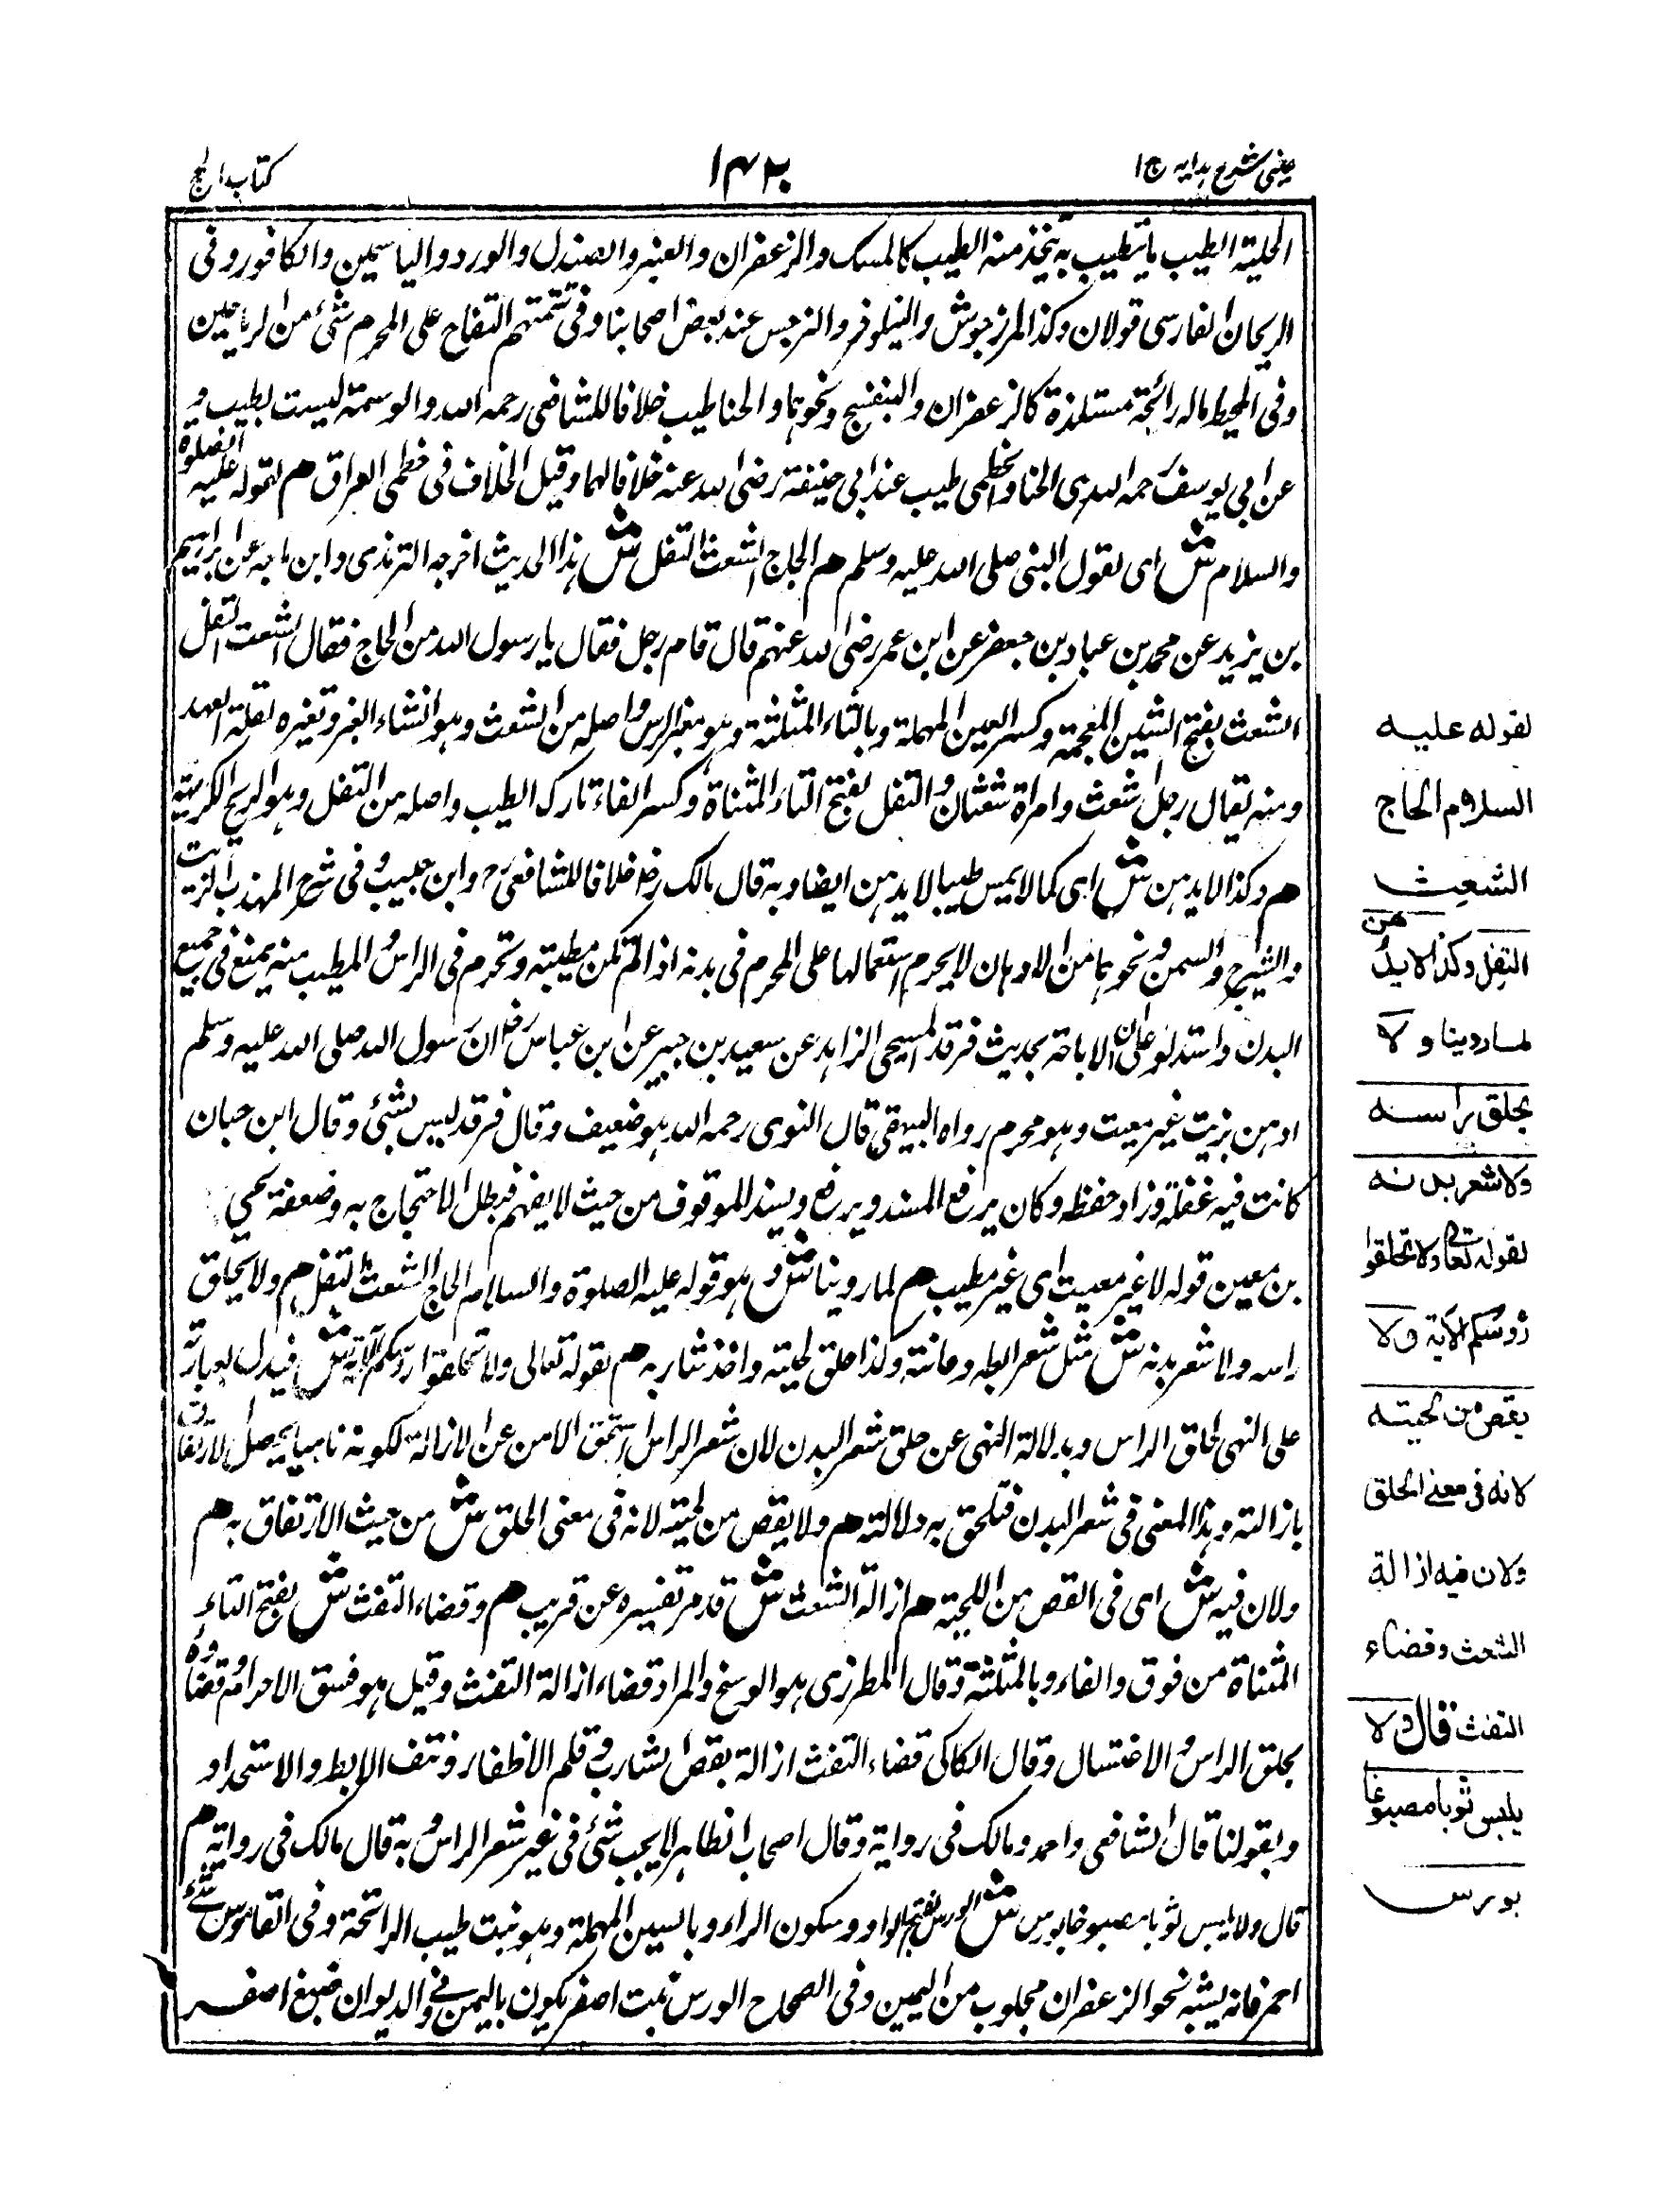 عینی شرح ہدایہ ج ا
۱۴۲۰
کتاب الحج
الحلیة الطیب ما یتطیب به یتخذ منه الطیب کالمسک والزعفران والعنبر والصندل والورد والیاسمین والکافور وفی
الریحان الفارسی قولان وکذا المرزجوش والنیلوفر والنرجس عند بعض اصحابنا وفی تتمتهم التفاح علی المحرم شئ من الریاحین
وفی المحیط ماله رائحة مستلذة کالزعفران والبنفسج ونحوهما والحنا طیب خلافا للشافعی رحمه الله والوسمة لیست بطیب و
عن ابی یوسف رحمه الله هی الحنا والخطمی طیب عند ابی حنیفة رضی الله عنه خلافا لهما وقیل الخلاف فی خطمی العراق هم لقوله علیه الصلوة
والسلام ش ای لقول النبی صلی الله علیه وسلم هم الحاج الشعث التفل ش هذا الحدیث اخرجه الترمذی وابن ماجه عن ابراهیم
بن یزید عن محمد بن عباد بن جعفر عن ابن عمر رضی الله عنهم قال قام رجل فقال یا رسول الله من الحاج فقال الشعث التفل
الشعث بفتح الشین المعجمة وکسر العین المهملة وبالثاء المثلثة وهو مغبر الراس واصله من الشعث وهو انتشاء الغبر وتغیره لقلة العهد
ومنه یقال رجل اشعث وامراة شعثان والتفل بفتح التاء المثناة وکسر الفاء تارک الطیب واصله من التفل وهو الریح الکریهة
هم وکذا لا یدهن ش ای کما لا یمس طیبا لا یدهن ایضا وبه قال مالک رض خلافا للشافعی رح وابن حبیب وفی شرح المهذب الزیت
والشیرج والسمن ونحوهما من الادهان لا یحرم استعمالها علی المحرم فی بدنه اذا لم تکن مطیبته وتحرم فی الراس والمطیب منه یمنع فی جمیع
البدن واستدلوا علی ان الاباحة بحدیث فرقد المسیحی الزاهد عن سعید بن جبیر عن ابن عباس رض ان رسول الله صلی الله علیه وسلم
ادهن بزیت غیر معیت وهو محرم رواه البیهقی قال النووی رحمه الله هو ضعیف وقال فرقد لیس بشئ وقال ابن حبان
کانت فیه غفلة وزاد حفظه وکان یرفع المسند ویرفع ویسند الموقوف من حیث لا یفهم فبطل الاحتجاج به وضعفه یحیی
بن معین قوله لا غیر معیت ای غیر مطیب هم لما روینا ش وهو قوله علیه الصلوة والسلام الحاج الشعث التفل هم ولا یحلق
راسه ولا شعر بدنه ش مثل شعر ابطه وعانته وکذا حلق لحیته واخذ شاربه هم لقوله تعالی ولا تحلقوا رؤسکم الآیة ش فیدل بعبارته
علی النهی لحلق الراس وبدلالة النهی عن حلق شعر البدن لان شعر الراس استحق الامن عن الازالة لکونه نامیا یحصل الارتفاق
بازالته وهذا المعنی فی شعر البدن فتلحق به دلالته هم ولا یقص من لحیته لانه فی معنی الحلق ش من حیث الارتفاق به هم
ولان فیه ش ای فی القص من اللحیة هم ازالة الشعث ش قد مر تفسیره عن قریب هم وقضاء التفث ش بفتح التاء
المثناة من فوق والفاء وبالمثلثة وقال المطرزی هو الوسخ والمراد قضاء ازالة التفث وقیل هو فسق الاحرام وقضاؤه
بحلق الراس والاغتسال وقال الکاکی قضاء التفث ازالة بقص الشارب وقلم الاظفار ونتف الابط والاستحداد
وبقولنا قال الشافعی واحمد ومالک فی روایة وقال اصحاب الظاهر لا یجب شئ فی غیر شعر الراس وبه قال مالک فی روایة هم
قال ولا یلبس ثوبا مصبوغا بورس ش الورس بفتح الواو وسکون الراء وبالسین المهملة وهو نبت طیب الرائحة وفی القاموس شئ
احمر فانه یشبه نحو الزعفران مجلوب من الیمین وفی الصحاح الورس نبت اصفر یکون بالیمن وفی الدیوان صبغ اصفر
لقوله علیه
السلام الحاج
الشعث
التفل وکذا لا یدهن
لما روینا ولا
یحلق راسه
ولا شعر بدنه
لقوله تعالی ولا تحلقوا
رؤسکم الآیة ولا
یقص من لحیته
لانه فی معنی الحلق
ولان فیه ازالة
الشعث وقضاء
التفث قال ولا
یلبس ثوبا مصبوغا
بورس